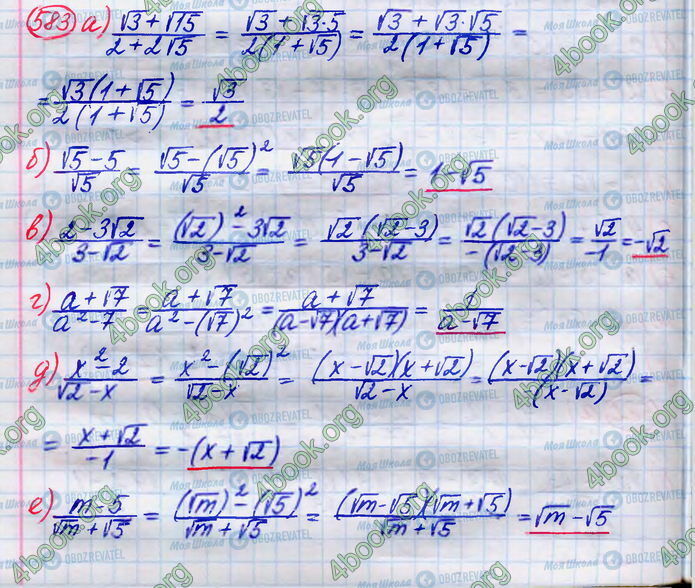 583 а) (√3+√15)/(2+2√5) = (√3+√3·5)/(2(1+√5)) = (√3+√3·√5)/(2(1+√5)) =
= (√3(1+√5))/(2(1+√5)) = √3/2
б) (√5-5)/√5 = (√5-(√5)²)/√5 = (√5(1-√5))/√5 = 1-√5
в) (2-3√2)/(3-√2) = ((√2)²-3√2)/(3-√2) = (√2(√2-3))/(3-√2) = (√2(√2-3))/(-(√2-3)) = √2/-1 = -√2
г) (a+√7)/(a²-7) = (a+√7)/(a²-(√7)²) = (a+√7)/((a-√7)(a+√7)) = 1/(a-√7)
д) (x²-2)/(√2-x) = (x²-(√2)²)/(√2-x) = ((x-√2)(x+√2))/(√2-x) = ((x-√2)(x+√2))/(x-√2) =
= (x+√2)/-1 = -(x+√2)
е) (m-5)/(√m+√5) = ((√m)²-(√5)²)/(√m+√5) = ((√m-√5)(√m+√5))/(√m+√5) = √m-√5
4book.org
Моя Школа
OBOZREVATEL